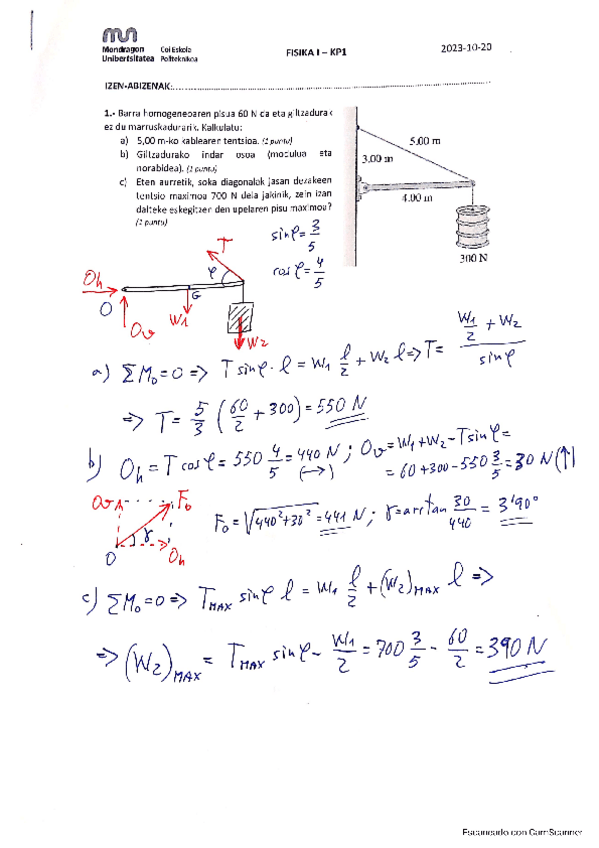 Mondragon Unibertsitatea Goi Eskola Politeknikoa
FISIKA I – KP1
2023-10-20
IZEN-ABIZENAK:
1.- Barra homogeneoaren pisua 60 N da eta giltzadurak
ez du marruskadurarik. Kalkulatu:
a) 5,00 m-ko kablearen tentsioa. (1 puntu)
b) Giltzadurako indar osoa (modulua eta
norabidea). (1 puntu)
c) Eten aurretik, soka diagonalak jasan dezakeen
tentsio maximoa 700 N dela jakinik, zein izan
daiteke eskegitzen den upelaren pisu maximoa?
(1 puntu)
5.00 m
3.00 m
4.00 m
300 N
sin φ = 3/5
cos φ = 4/5
T
φ
Oh
O
Ov
G
W1
W2
a) ΣMo=0 => T sin φ · l = W1 l/2 + W2 l => T = (W1/2 + W2)/sin φ
=> T = 5/3 (60/2 + 300) = 550 N
b) Oh = T cos φ = 550 4/5 = 440 N (→) ; Ov = W1+W2-T sin φ =
= 60+300-550 3/5 = 30 N (↑)
Ov
Fo
γ
O
Oh
Fo = √(440²+30²) = 441 N ; γ = arctan 30/440 = 3'90°
c) ΣMo=0 => TMAX sin φ l = W1 l/2 + (W2)MAX l =>
=> (W2)MAX = TMAX sin φ - W1/2 = 700 3/5 - 60/2 = 390 N
Escaneado con CamScanner